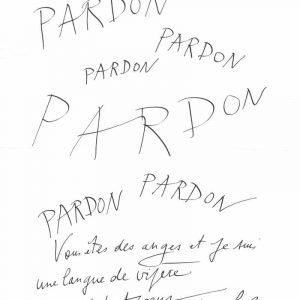 PARDON
PARDON
PARDON
PARDON
PARDON PARDON
Vous êtes des anges et je suis
une langue de vipère